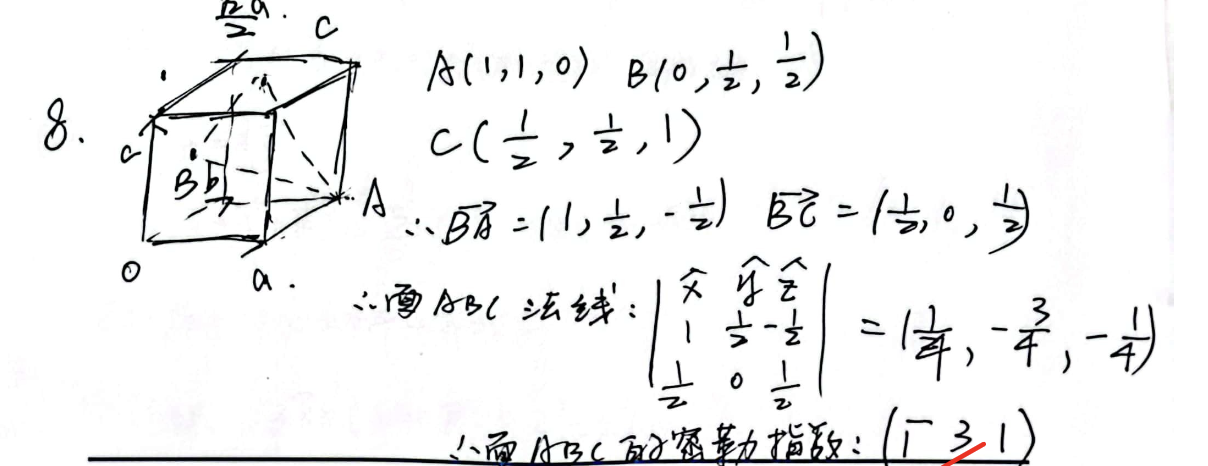 √2/2 a.
C
8.
c
B
b
A
O
a.
A(1,1,0) B(0,1/2,1/2)
C(1/2,1/2,1)
∴BA⃗=(1,1/2,-1/2) BC⃗=(1/2,0,1/2)
∴面ABC法线:| x̂ ŷ ẑ |
| 1 1/2 -1/2 | =(1/4,-3/4,-1/4)
| 1/2 0 1/2 |
∴面ABC的密勒指数:(1̄ 3 1)